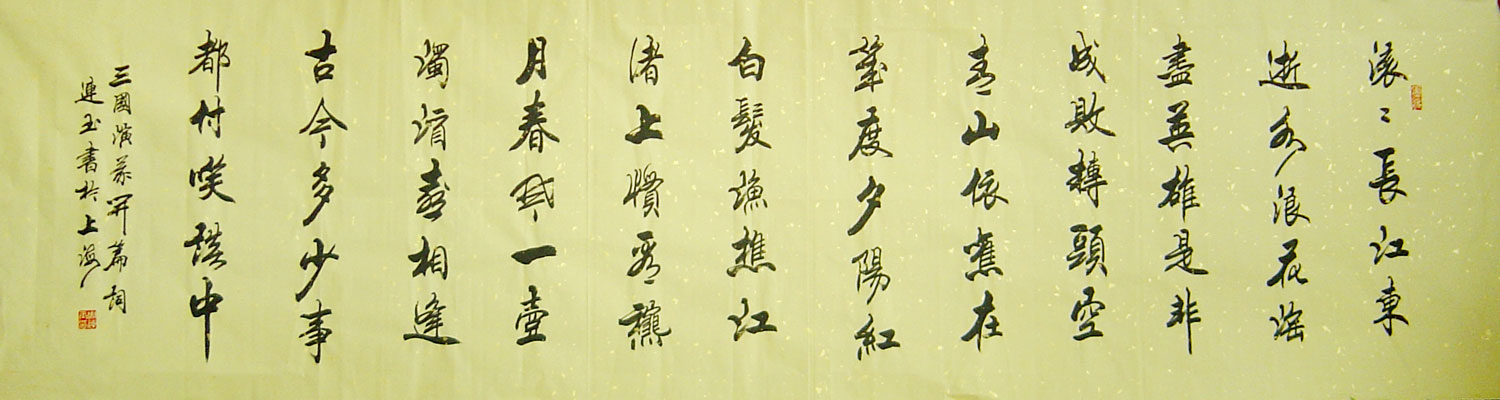 滚〻長江東
逝水浪花淘
盡英雄是非
成敗轉頭空
青山依舊在
幾度夕陽紅
白髮漁樵江
渚上慣看龝
月春風一壺
濁酒喜相逢
古今多少事
都付咲談中
三國演義開篇詞
連玉書於上海